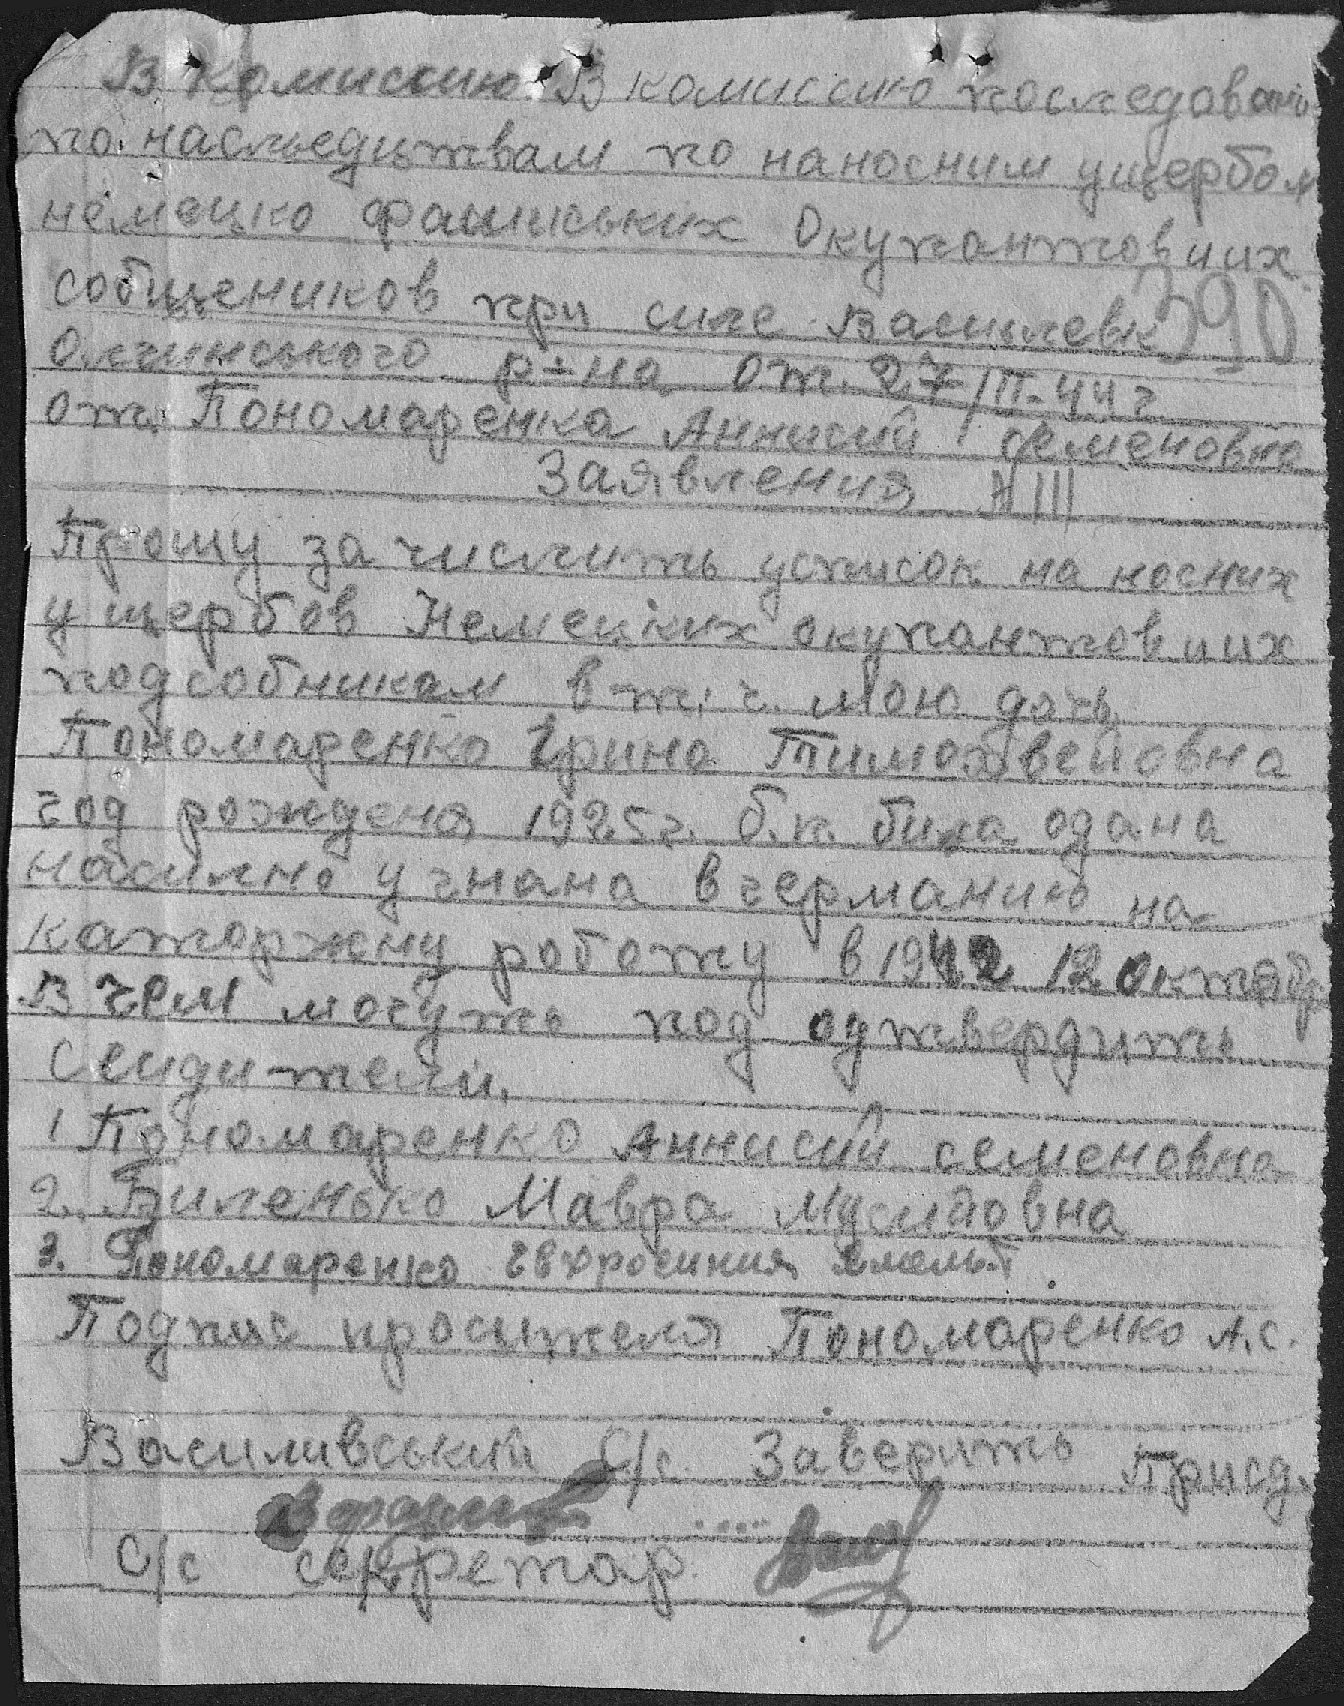 В Комиссию. В комиссию последован
по наследитвам по наносним ущербом
немецко фашиських Окупантов иих
собщеников при силе Василевк
390
р-на от. 27/III-44 г
от. Пономаренка Аннисий семеновна
Заявления
Прошу за числить усписок на носних
ущербов Немецких окупантов иих
подсобникам в т. ч. мою дочь
Пономаренко Ірина Тимохвейовна
год рождения 1925 г. б.п. била одана
насилно у гнана в германию на
каторжну роботу в 1942 12 Октябр
В чем могуть под одтвердить
Свидители.
1 Пономаренко Аннисий семеновна
2. Биленько Мавра Мусийовна
3. Пономаренко Евхросиния Емельт
Подпис просителя Пономаренко А.С.
Василивський С/с. Заверить
С/с секретар